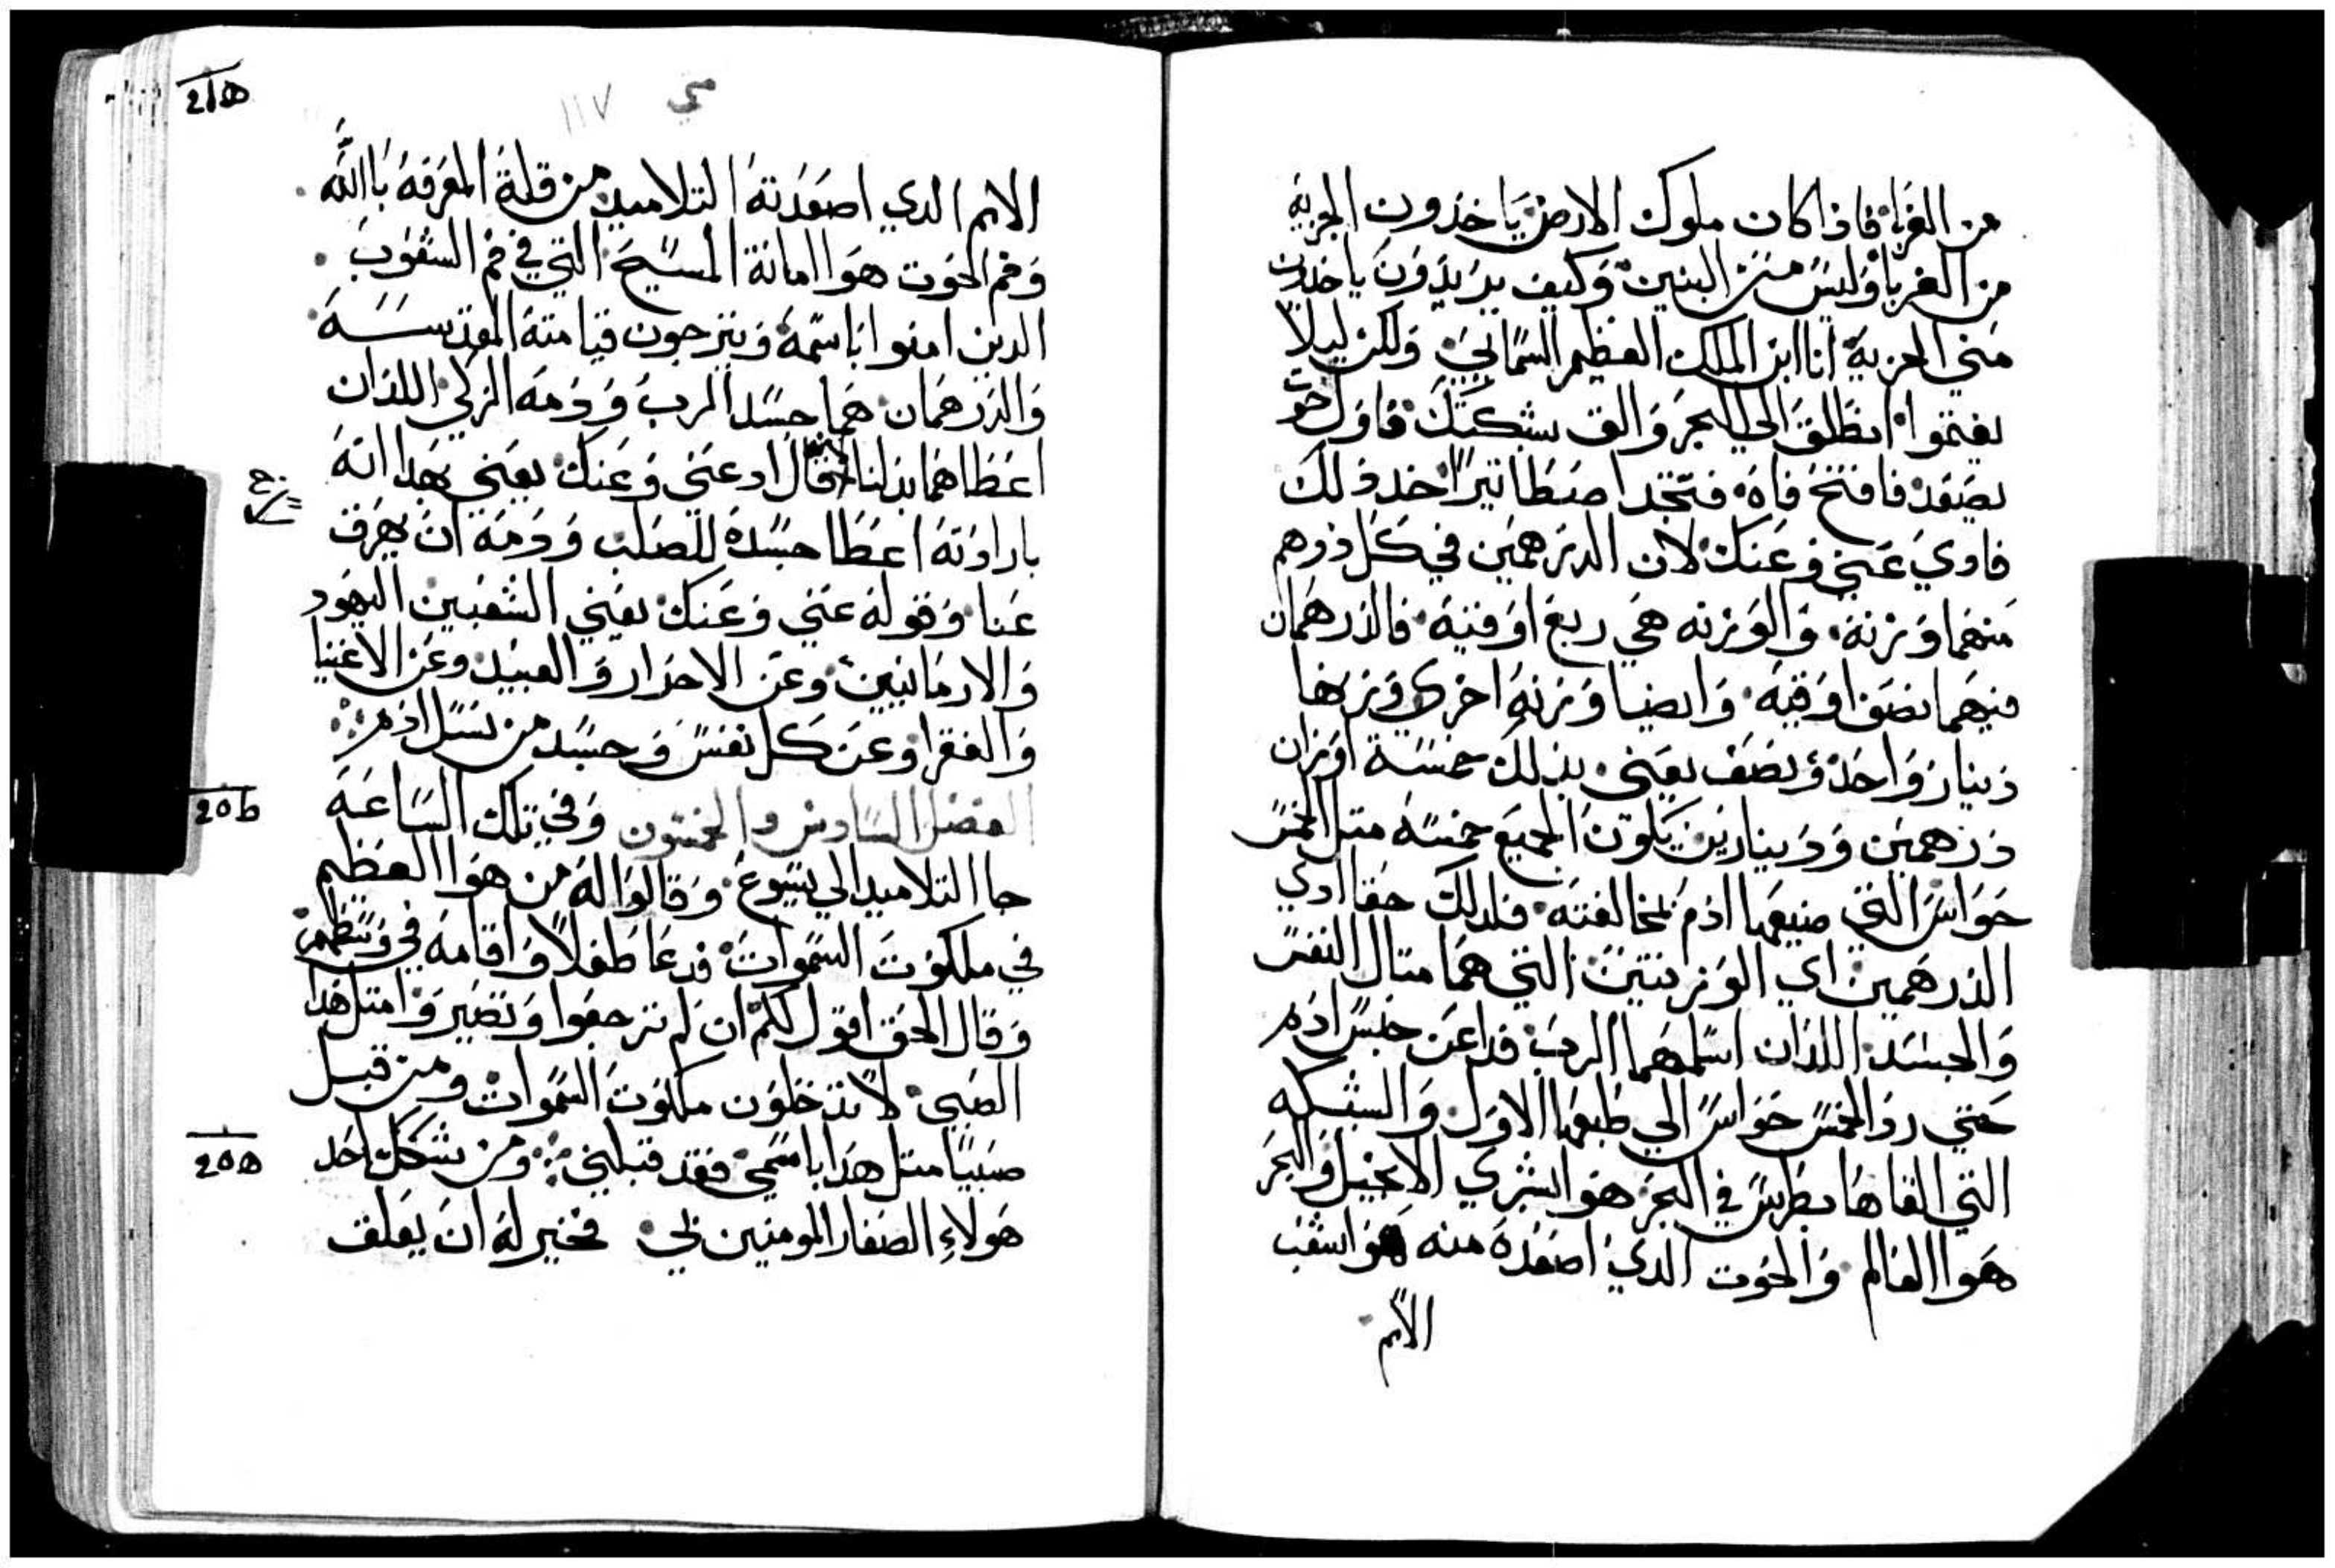 من الغربا فاذا كان ملوك الارض ياخذون الجزيه
من الغربا وليس من البنين وكيف يريدون ياخدون
مني الجزية انا ابن الملك العظيم السمايي ولكن ليلا
يغتموا انطلق الي البحر والق بشكتك فاول حوت
يصعد فافتح فاه فتجد اصطاتيرا خد ذلك
فادي عني وعنك لان الدرهمين في كل درهم
منهما وزنة والوزنه هي ربع اوقية فالدرهمان
فيهما نصف اوقية وايضا وزنه اخري وزنها
دينار واحد ونصف يعني بذلك خمسة اوزان
درهمين ودينارين يكون الجميع خمسه متل الخمس
حواس التي ضيعها ادم لمخالفته فلدلك حقا ادي
الدرهمين اي الوزنتين التي هما متال النفس
والجسد اللذان اسلمهما الرب فدا عن جنس ادم
حتي رد الخمس حواس الي طبعها الاول والشبكه
التي القاها بطرس في البحر هو البشري الانجيل والبحر
هوا العالم والحوت الدي اصعده منه هو اشعب
الامم
117
الامم الدي اصعدته التلاميد من قلة المعرفة باالله
وفم الحوت هوا امانة المسيح التي في فم الشعوب
الدين امنوا باسمه ويترجون قيامته المقدسة
والدرهمان هما جسد الرب ودمه الزكي اللذان
اعطاهما بدلنا قال اد عني وعنك يعني بهدا انه
باراوته اعطا جسده للصلب ودمه ان يهرق
عنا وقوله عني وعنك يعني الشعبين اليهود
والارمانيين وعن الاحرار والعبيد وعن الاغنيا
والفقرا وعن كل نفس وجسد من نسل ادم
الفصل السادس والخمسون وفي تلك الساعة
جا التلاميد الي يسوع وقالوا له من هوا العظيم
في ملكوت السموات فدعا طفلا واقامه في وسطهم
وقال الحق اقول لكم ان لم ترجعوا وتصيروا متل هذا
الصبي لا تدخلون ملكوت السموات ومن قبل
صبيا متل هدا باسمي فقد قبلني ومن شكك احد
هولاء الصغار المومنين بي فخير له ان يعلق